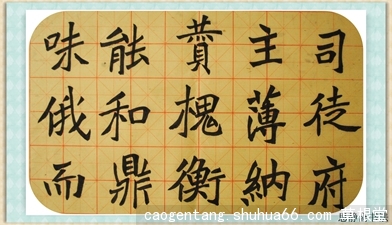 司徒府
主薄納
贊槐衡
能和鼎
味俄而
caogentang.shuhua66.com 草根堂